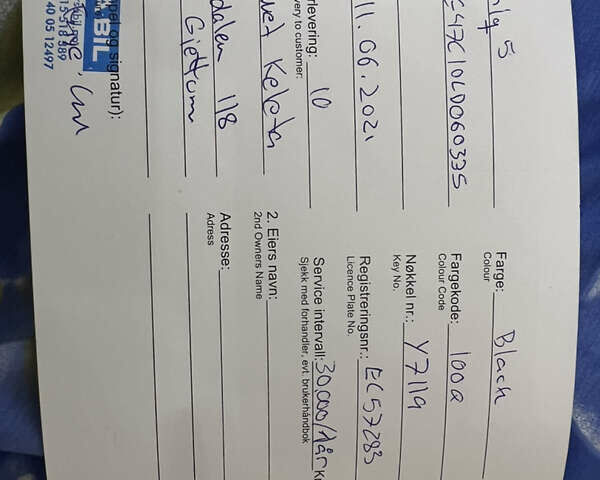 5
C47C10LD060335
11.06.2021
rlevering:
very to customer: 10
Keleta
118
Gjettum
pel og signatur):
BIL
40 05 12497
Farge: Black
Colour
Fargekode: 100a
Colour Code
Nøkkel nr.: Y7119
Key No.
Registreringsnr.: EC57283
Licence Plate No.
Service intervall: 30.000/1år
Sjekk med forhandler, evt. brukerhåndbok
2. Eiers navn:
2nd Owners Name
Adresse:
Adress